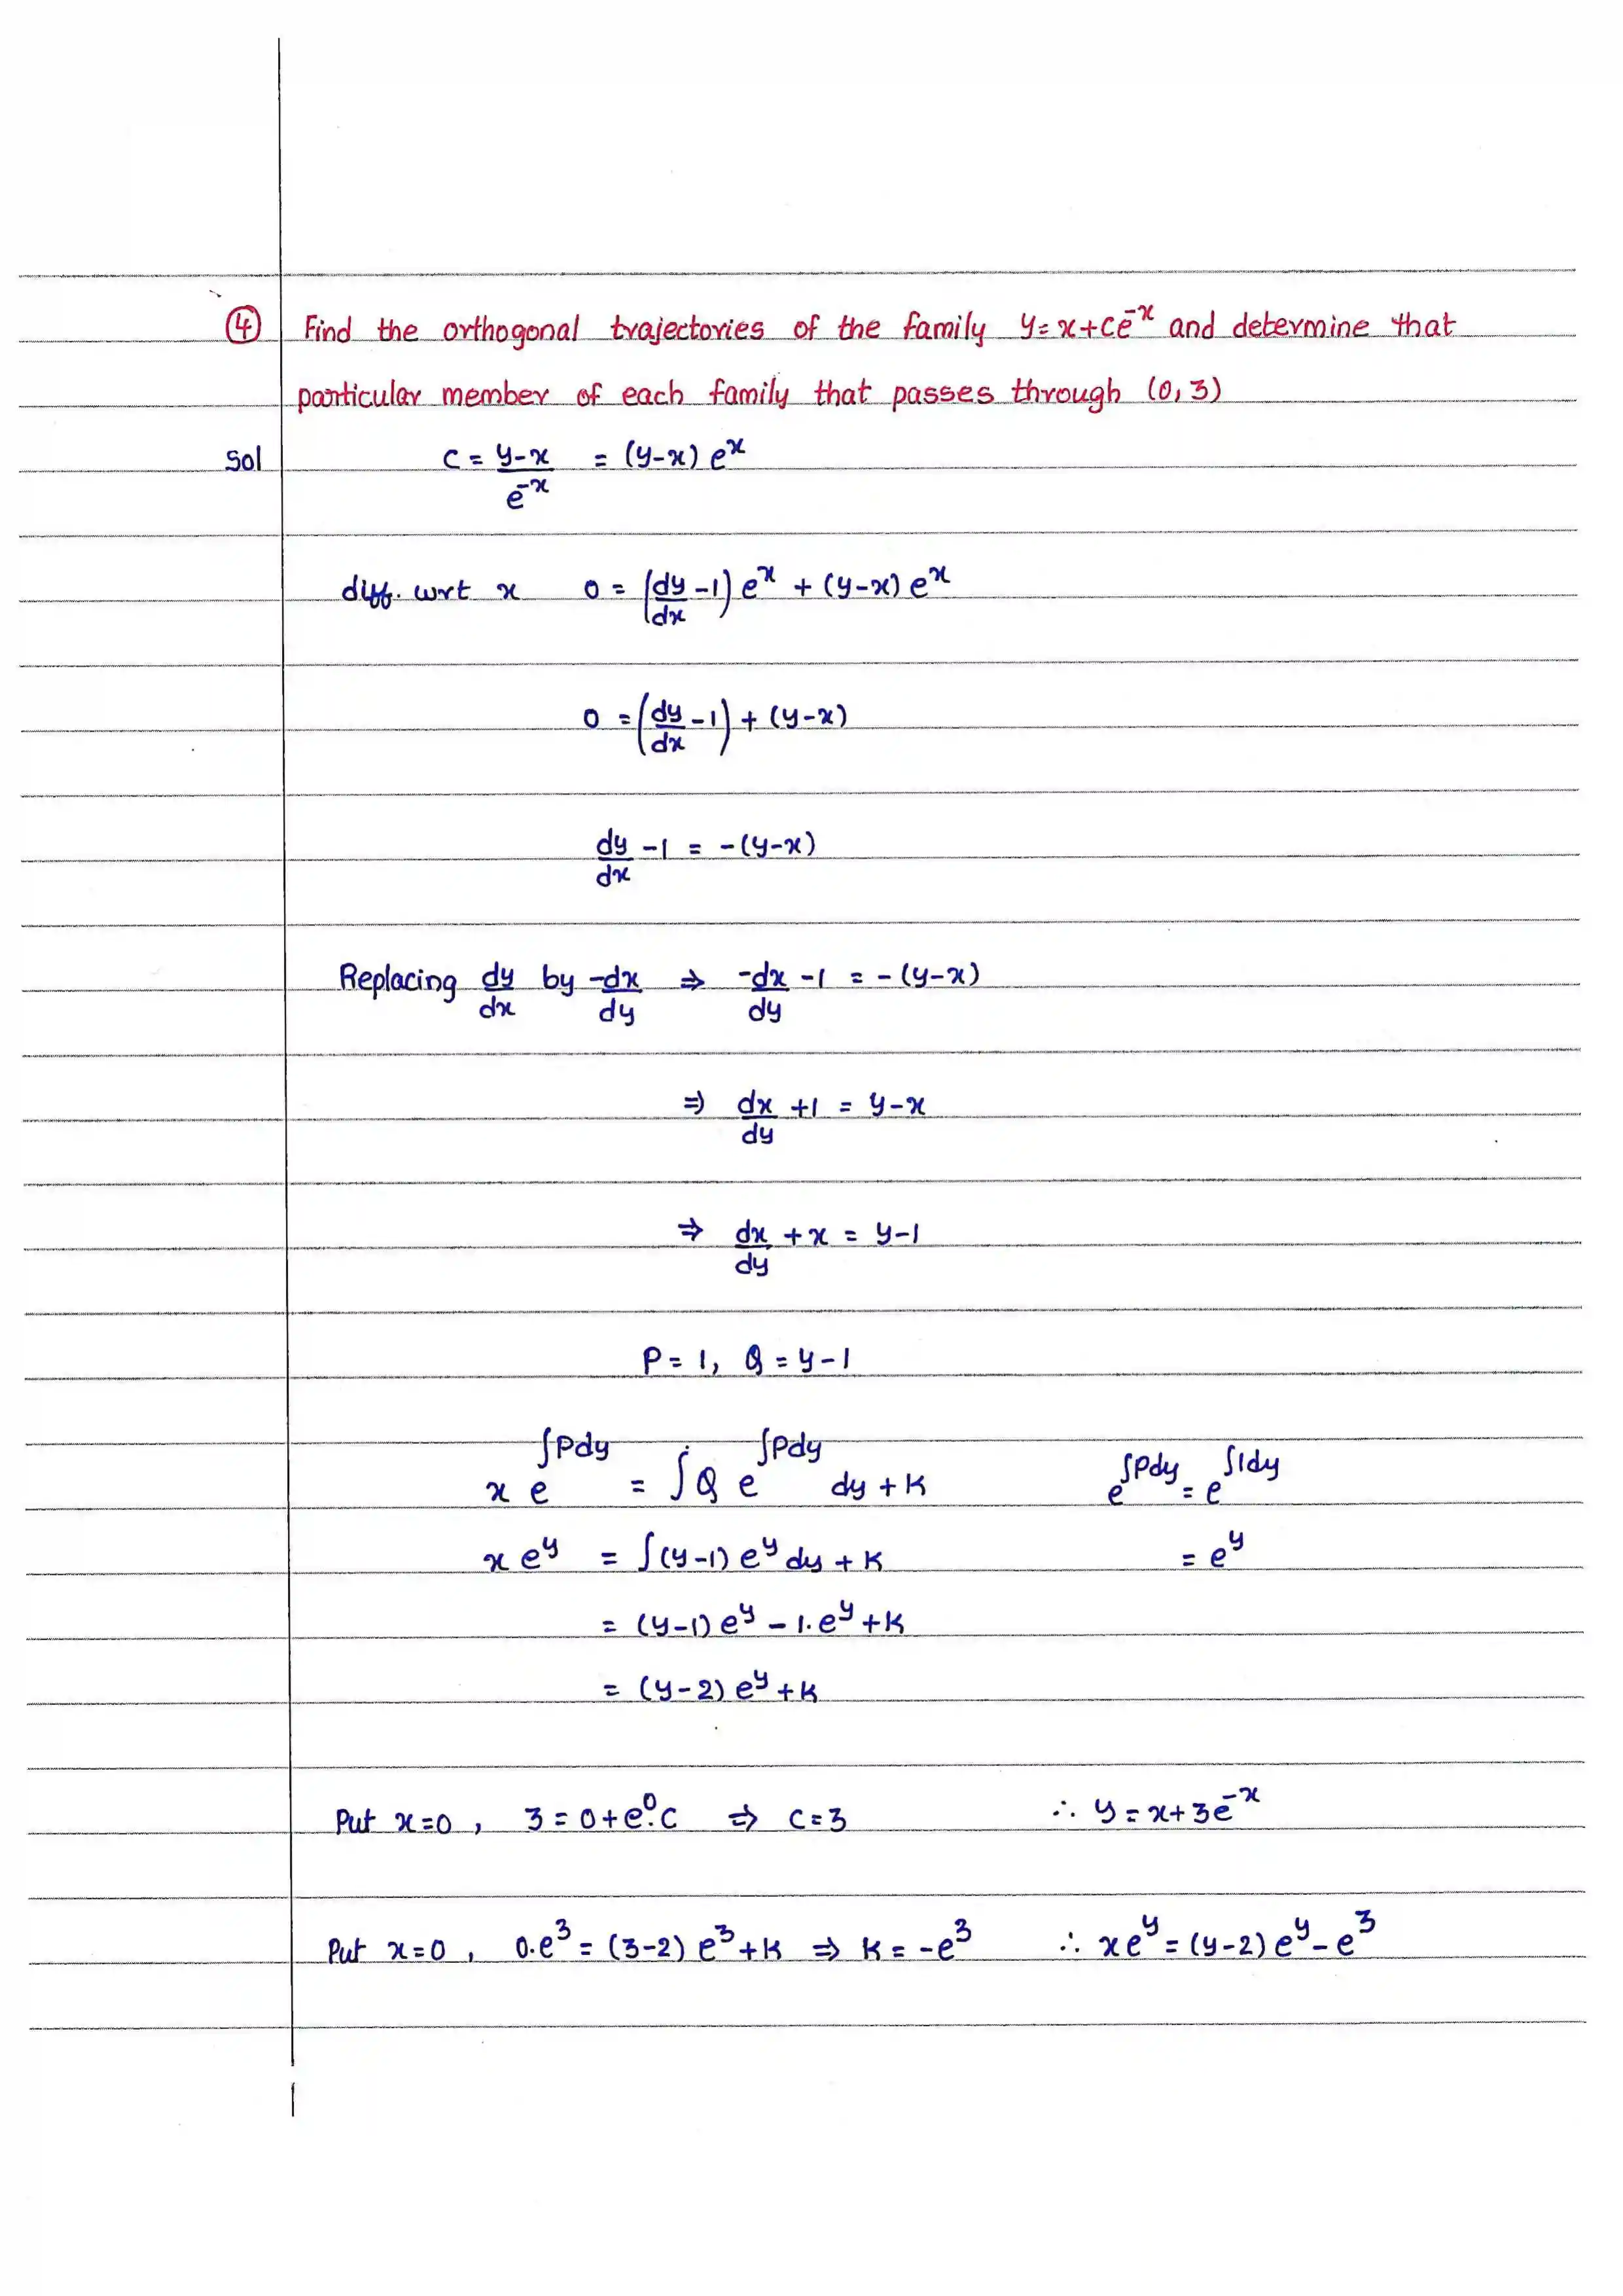 ④ Find the orthogonal trajectories of the family y = x + ce^-x and determine that
particular member of each family that passes through (0, 3)
Sol c = (y-x)/e^-x = (y-x) e^x
diff. wrt x 0 = (dy/dx - 1) e^x + (y-x) e^x
0 = (dy/dx - 1) + (y-x)
dy/dx - 1 = -(y-x)
Replacing dy/dx by -dx/dy ⇒ -dx/dy - 1 = -(y-x)
⇒ dx/dy + 1 = y-x
⇒ dx/dy + x = y-1
P = 1, Q = y-1
x e^∫Pdy = ∫Q e^∫Pdy dy + K e^∫Pdy = e^∫1dy
x e^y = ∫(y-1) e^y dy + K = e^y
= (y-1) e^y - 1.e^y + K
= (y-2) e^y + K
Put x=0, 3 = 0 + e^0.c ⇒ c=3 ∴ y = x + 3e^-x
Put x=0, 0.e^3 = (3-2) e^3 + K ⇒ K = -e^3 ∴ xe^y = (y-2) e^y - e^3